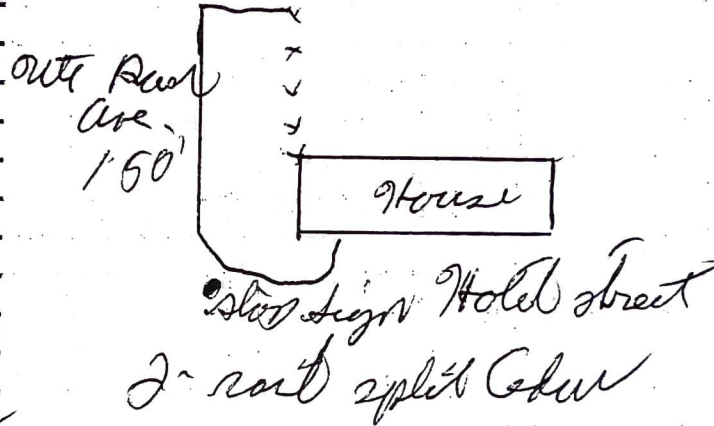 Ute
Ave.
150'
House
stop sign Hotel street
2-rail split Cedar